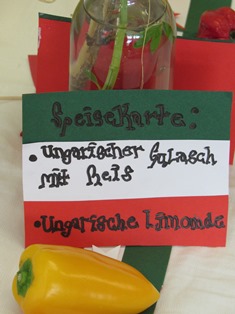 Speisekarte:
• Ungarischer Gulasch
mit Reis
• Ungarische Limonde